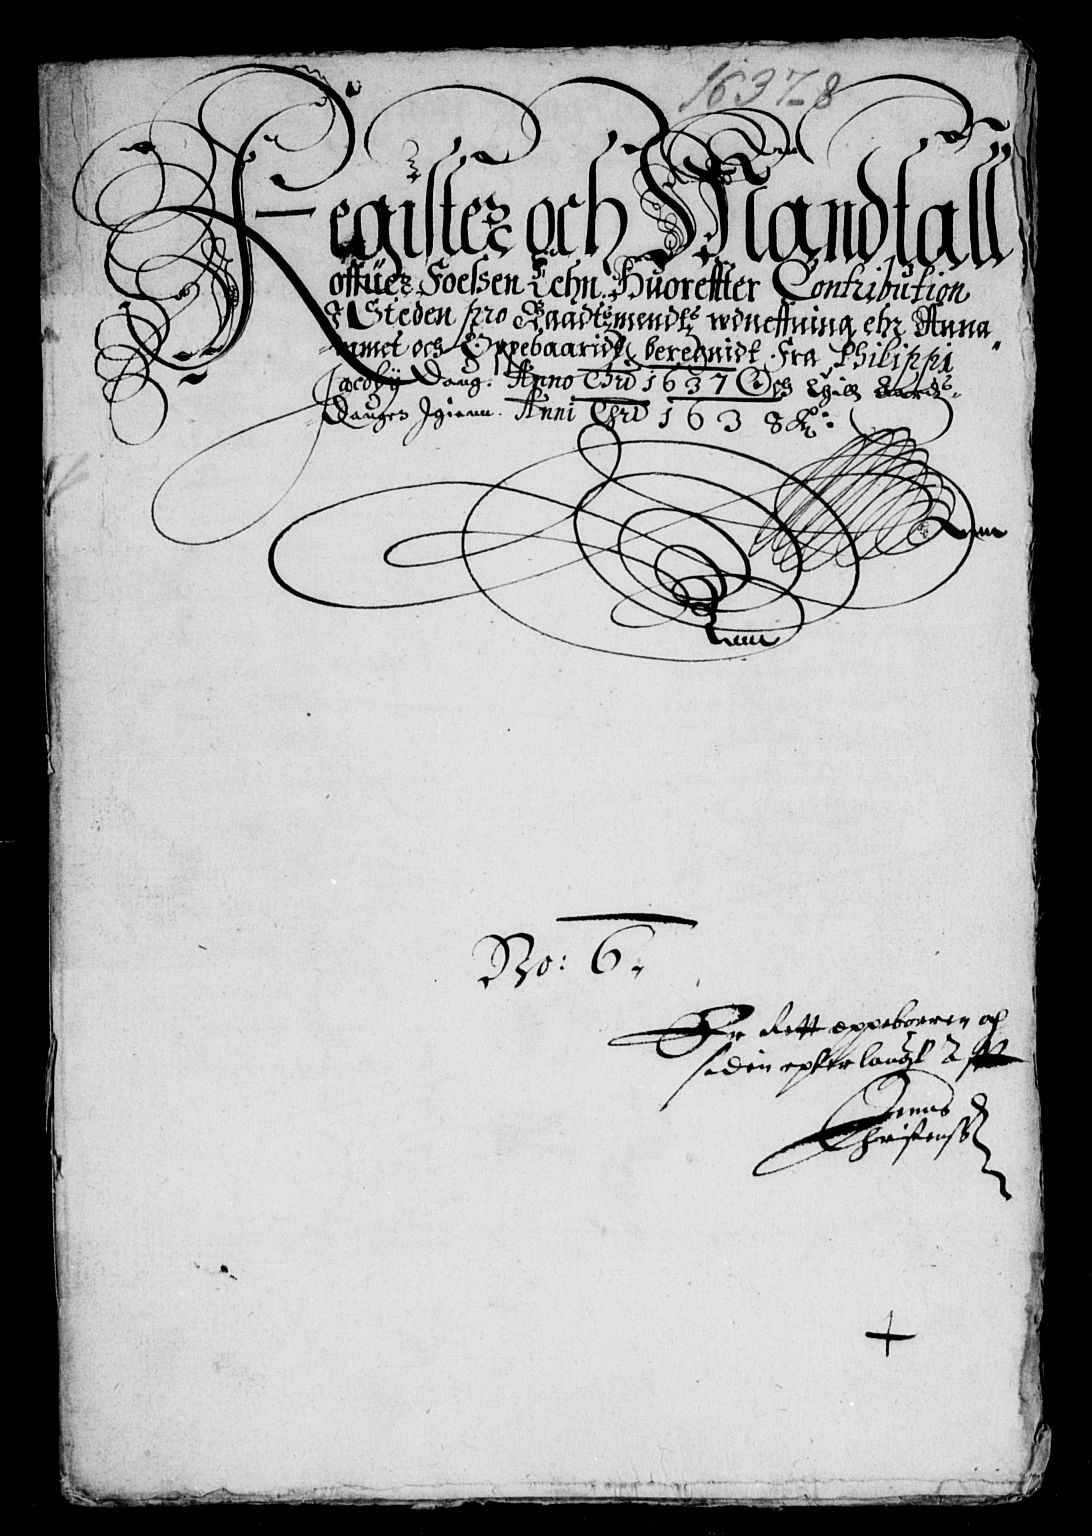 1637-8
Register och Mandtall
offuer Foessen Lehn. Huorefter Contribution
Steden pro Raadtzmendz wdneffning ehr Anna-
mmet och Oppebaaridt beregnidt fra Philippi
Jacobj Daug. Anno Chri 1637 Och till
Dauges Igienn. Anni Chri 1638
No: 6.
Er Rett oppeboeren och
siden
Jenns
Christenss